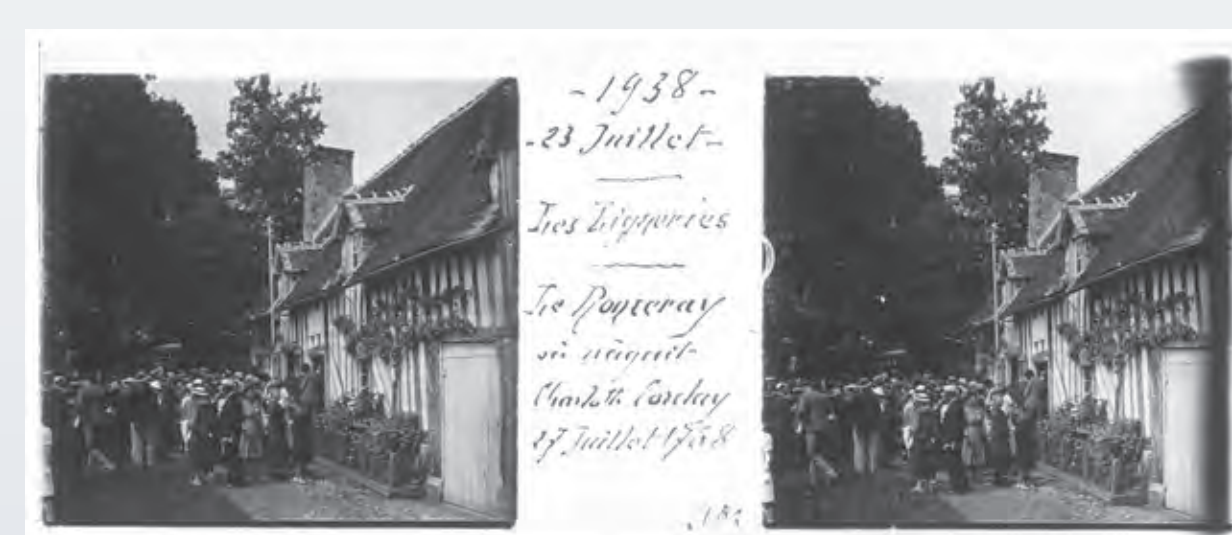 - 1938 -
- 23 Juillet -
Les Ligneries
Le Ronceray
où naquit
Charlotte Corday
27 Juillet 1768